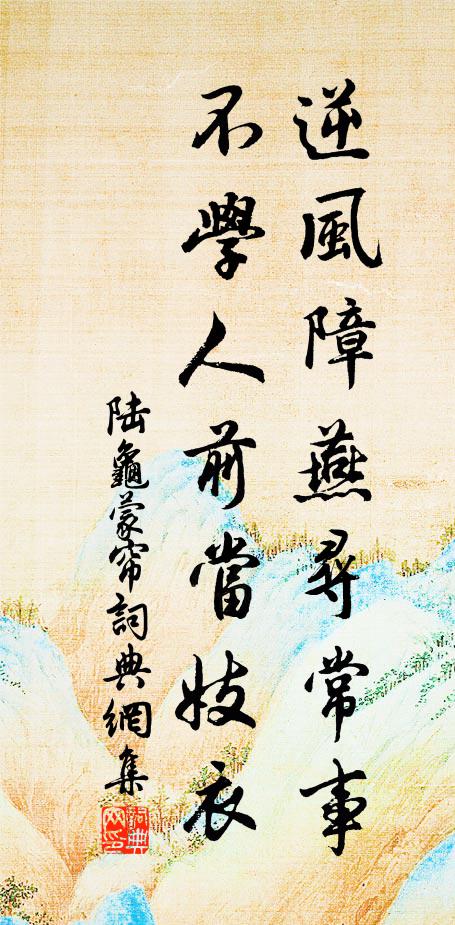 逆風障燕尋常事
不學人前當妓衣
陆龜蒙帘詞典網集
詞典网印